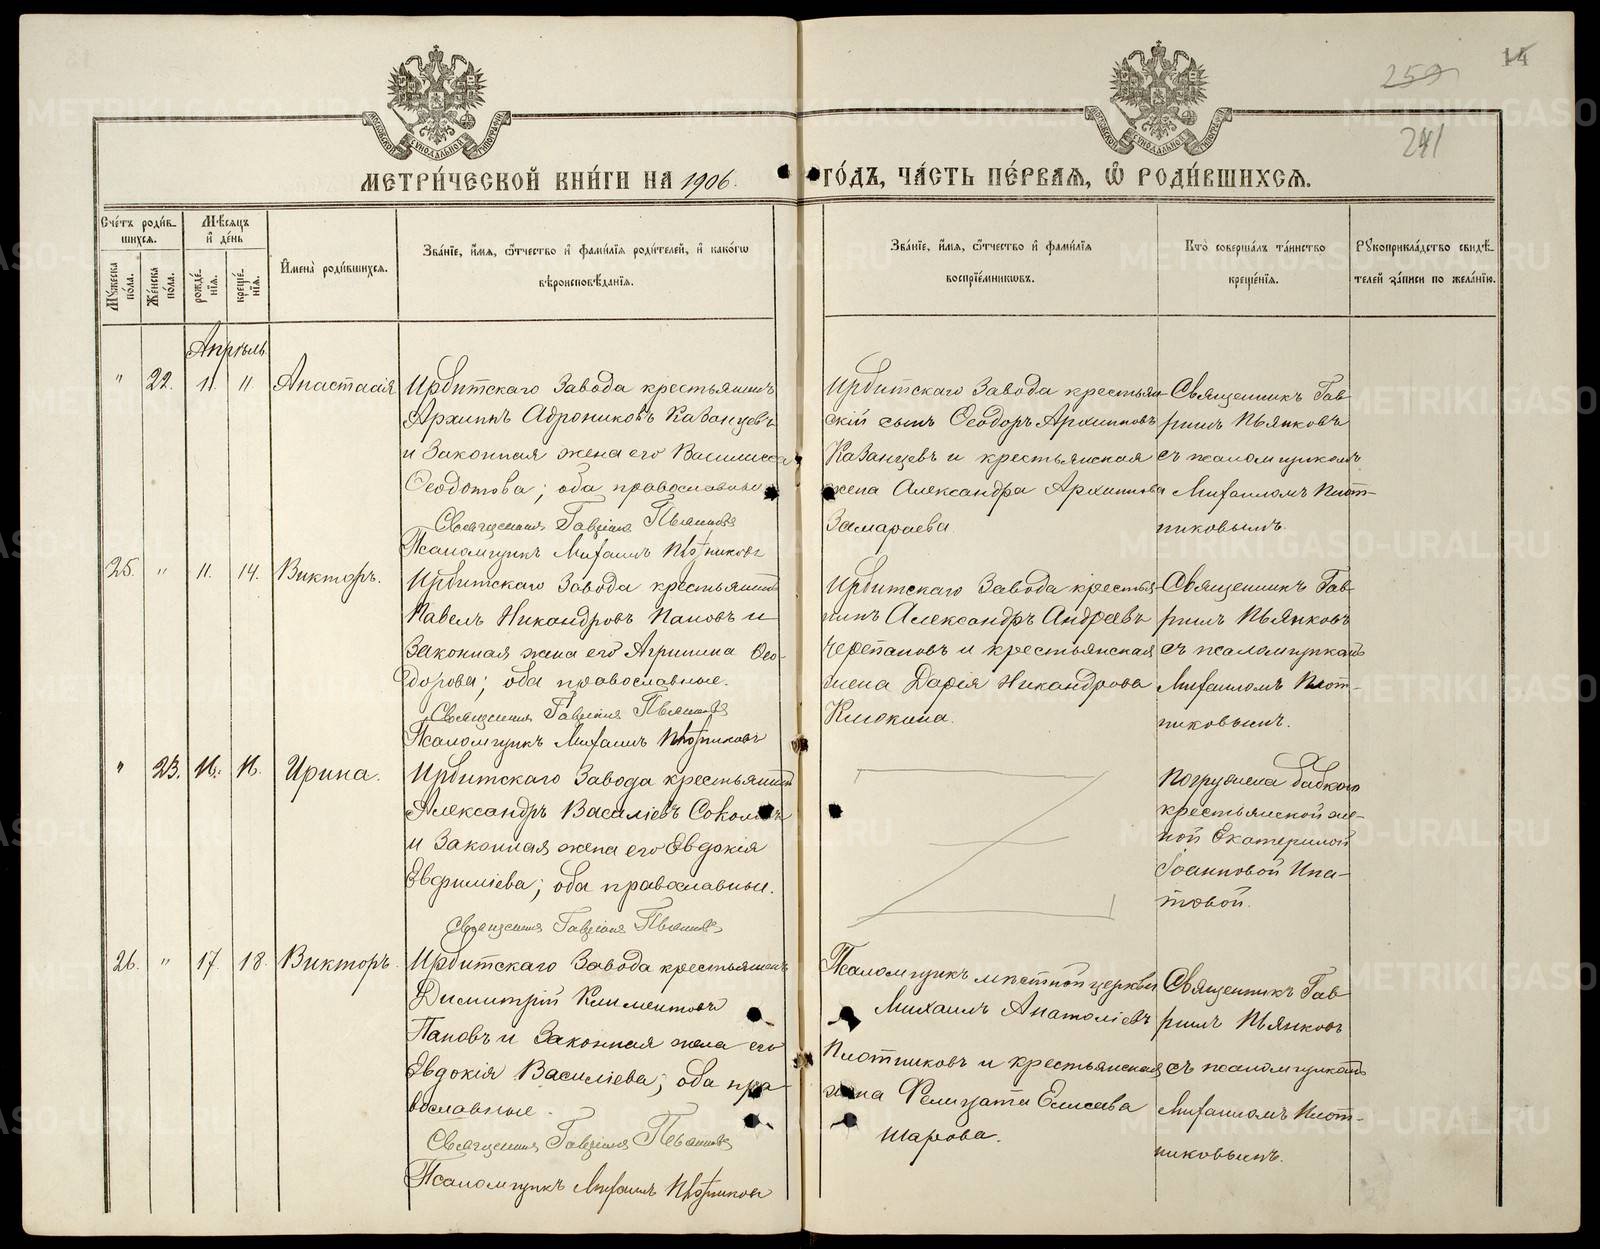 259
14
241
МЕТРИ́ЧЕСКОЙ КНИ́ГИ НА 1906. ГО́ДЪ, ЧА́СТЬ ПЕ́РВАЯ, Ѽ РОДИ́ВШИХСЯ.
Сче́тъ роди́в-
шихся.
Мѣ́сяцъ
и́ де́нь
Му́жеска по́ла.
Же́нска по́ла.
рожде́-нїя.
креще́-нїя.
И҆мена̀ роди́вшихся.
Зва́нїе, и҆́мя, ѻ҆́тчество и҆ фами́лїя роди́телей, и҆ како́гѡ
вѣроисповѣ́данїя.
Зва́нїе, и҆́мя, ѻ҆́тчество и҆ фами́лїя
воспрїе́мниковъ.
Кто̀ соверша́лъ та́инство
креще́нїя.
Рꙋкоприкла́дство свидѣ́-
телей за́писи по жела́нїю.
Апрѣль
" 22. 11. 11. Анастасія
Ирбитскаго Завода крестьянинъ
Архипъ Адрониковъ Казанцевъ
и Законная жена его Василисса
Ѳеодотова; оба православные
Священникъ Гавріилъ Пьянковъ
Псаломщикъ Михаилъ Плотниковъ
Ирбитскаго Завода крестьян-
скій сынъ Ѳеодоръ Архиповъ
Казанцевъ и крестьянская
жена Александра Архиппова
Замараева.
Священникъ Гав-
ріилъ Пьянковъ
съ псаломщикомъ
Михаиломъ Плот-
никовымъ.
25. " 11. 14. Викторъ.
Ирбитскаго Завода крестьянинъ
Павелъ Никандровъ Пановъ и
Законная жена его Агрипина Ѳео-
дорова; оба православные.
Священникъ Гавріилъ Пьянковъ
Псаломщикъ Михаилъ Плотниковъ
Ирбитскаго Завода крестья-
нинъ Александръ Андреевъ
Черепановъ и крестьянская
жена Дарія Никандрова
Клюкина.
Священникъ Гав-
ріилъ Пьянковъ
съ псаломщикомъ
Михаиломъ Плот-
никовымъ.
" 23. 16. 16. Ирина.
Ирбитскаго Завода крестьянинъ
Александръ Василіевъ Соколовъ
и Законная жена его Евдокія
Евфиміева; оба православные.
Священникъ Гавріилъ Пьянковъ
Погружена бабкою
крестьянской же-
ной Екатериной
Іоанновой Ипа-
товой.
26. " 17. 18. Викторъ.
Ирбитскаго Завода крестьянинъ
Димитрій Климентовъ
Пановъ и Законная жена его
Евдокія Василіева; оба пра-
вославные.
Священникъ Гавріилъ Пьянковъ
Псаломщикъ Михаилъ Плотниковъ
Псаломщикъ мѣстной церкви
Михаилъ Анатоліевъ
Плотниковъ и крестьянская
жена Фелицата Елисеева
Шарова.
Священникъ Гав-
ріилъ Пьянковъ
съ псаломщикомъ
Михаиломъ Плот-
никовымъ.
METRIKI.GASO-URAL.RU